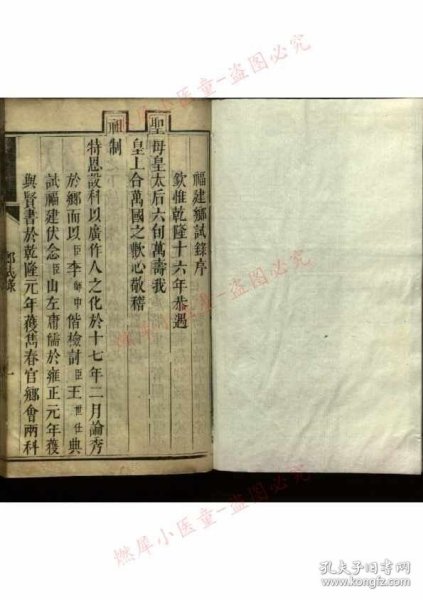 福建鄉試錄序
欽惟乾隆十六年恭遇
聖母皇太后六旬萬壽我
皇上合萬國之歡心敬稽
祖制
特恩設科以廣作人之化於十七年二月論秀
於鄉而以臣李師中偕檢討臣王世仕典
試福建伏念臣山左庸儒於雍正元年獲
與賢書於乾隆元年獲雋春官鄉會兩科
鄉試錄
一
燃犀小医童-盗图必究
燃犀小医童-盗图必究
燃犀小医童-盗图必究
孔夫子旧书网
www.kongfz.com